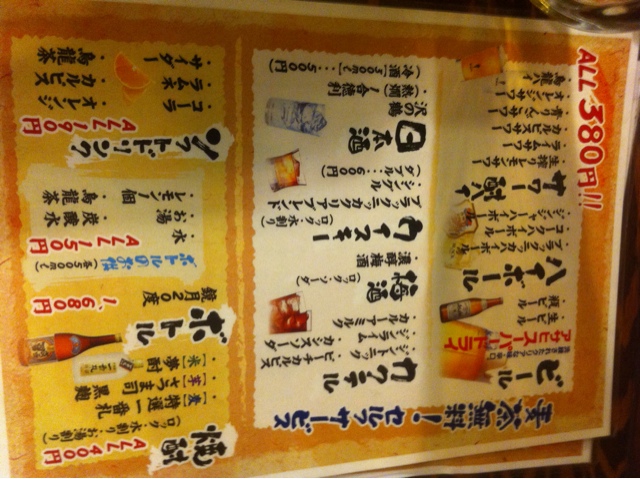 麦茶無料！セルフサービス
ALL 380円!!
ビール
アサヒスーパードライ
洗練されたクリアな味・辛口
・生ビール
・瓶ビール
ハイボール
・ブラックニッカハイボール
・コークハイボール
・ジンジャーハイボール
サワー・酎ハイ
・生搾レモンサワー
・ライムサワー
・カルピスサワー
・青りんごサワー
・オレンジサワー
・烏龍ハイ
カクテル
・ピーチカルピス
・カシスソーダ
・ジントニック
・ジンライム
・カルアミルク
梅酒
(ロック・ソーダ)
・濃醇梅酒
ウイスキー
(ロック・水割り)
ブラックニッカクリアブレンド
・シングル
(ダブル…600円)
日本酒
・沢の鶴
・熱燗1合徳利
(冷酒)300ml…500円
焼酎
ALL 400円
(ロック・水割り・お湯割り)
・[麦]特選一番札
・[芋]さつま司
・[米]夢酎
・黒糖
ボトル
鏡月20度
1,680円
ボトルのお供
(各500ml)
ALL 150円
・水
・炭酸水
・お湯
・烏龍茶
・レモン1個
ソフトドリンク
ALL 190円
・コーラ
・オレンジ
・ラムネ
・カルピス
・サイダー
・烏龍茶